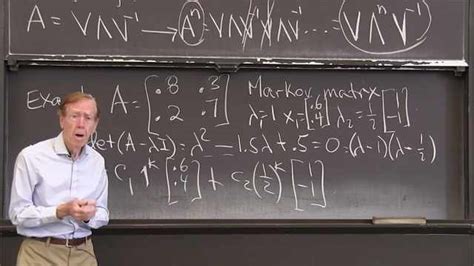 A = VΛV⁻¹ Aⁿ = VΛV⁻¹VΛV⁻¹ ··· = VΛⁿV⁻¹
Exa A = [.8 .3; .2 .7] Markov matrix
λ₁=1 x₁=[.6; .4] λ₂=½ [1; -1]
det(A-λI) = λ² - 1.5λ + .5 = 0 = (λ-1)(λ-½)
C₁ 1ᵏ [.6; .4] + C₂ (½)ᵏ [1; -1]